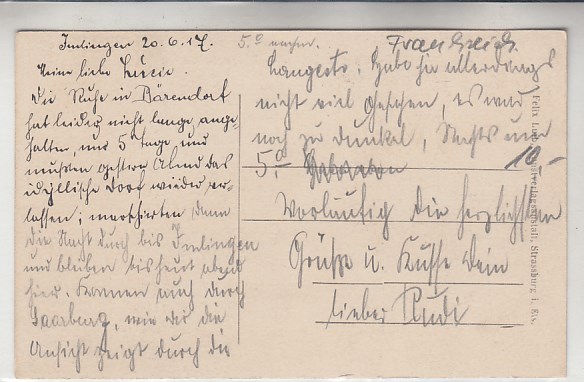 Imlingen 20.6.17.
Meine liebe Luzie.
Die Ruhe in Bärendorf
hat leider nicht lange ange-
halten, nur 5 Tage und
mußten gestern Abend das
idyllische Dorf wieder ver-
lassen; marschierten dann
die Nacht durch bis Imlingen
und bleiben bis heut abend
hier. Kamen auch durch
Saarburg, wie dir die
Ansicht zeigt durch die
5.-
Frankreich.
Habe ja allerdings
nicht viel gesehen, es war
noch zu dunkel, Nachts um
5.-
10.-
Vorläufig die herzlichsten
Grüße u. Küsse Dein
lieber Rudi
Felix Strassburg i. Els.